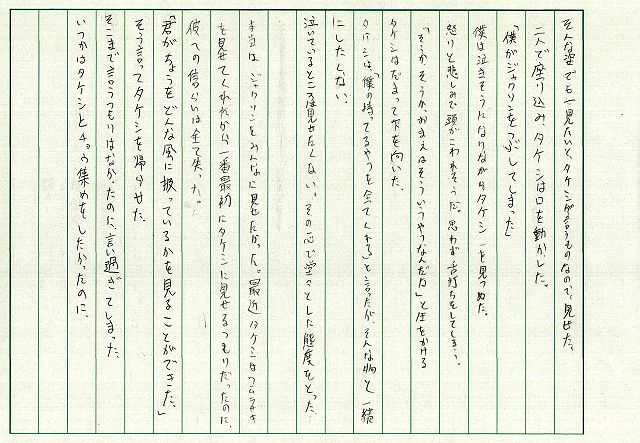 そんな姿でも一見たいと、タケシが言うものなので、見せた。
二人で座り込み、タケシは口を動かした。
「僕がジャクリンをつぶしてしまった」
僕は泣きそうになりながらタケシーを見つめた。
怒りと悲しみで頭がこわれそうだ。思わず舌打ちをしてしまう。
「そうか、そうか、おまえはそういうやつなんだな」と圧をかける
タケシはだまって下を向いた。
「僕の持ってるやつを全てくれる」と言ったが、そんな物と一緒
にしたくない。
泣いているところは見せたくない。その一心で堂々とした態度をとった。
本当は、ジャクリンをみんなに見せたかった。最近タケシは
を見せてくれたから一番最初にタケシに見せるつもりだったのに、
彼への信らいは全て失った。
「君がちょうをどんな風に扱っているかを見ることができた。」
そう言ってタケシを帰らせた。
そこまで言うつもりはなかったのに、言い過ぎてしまった。
いつかはタケシとチョウ集めをしたかったのに、